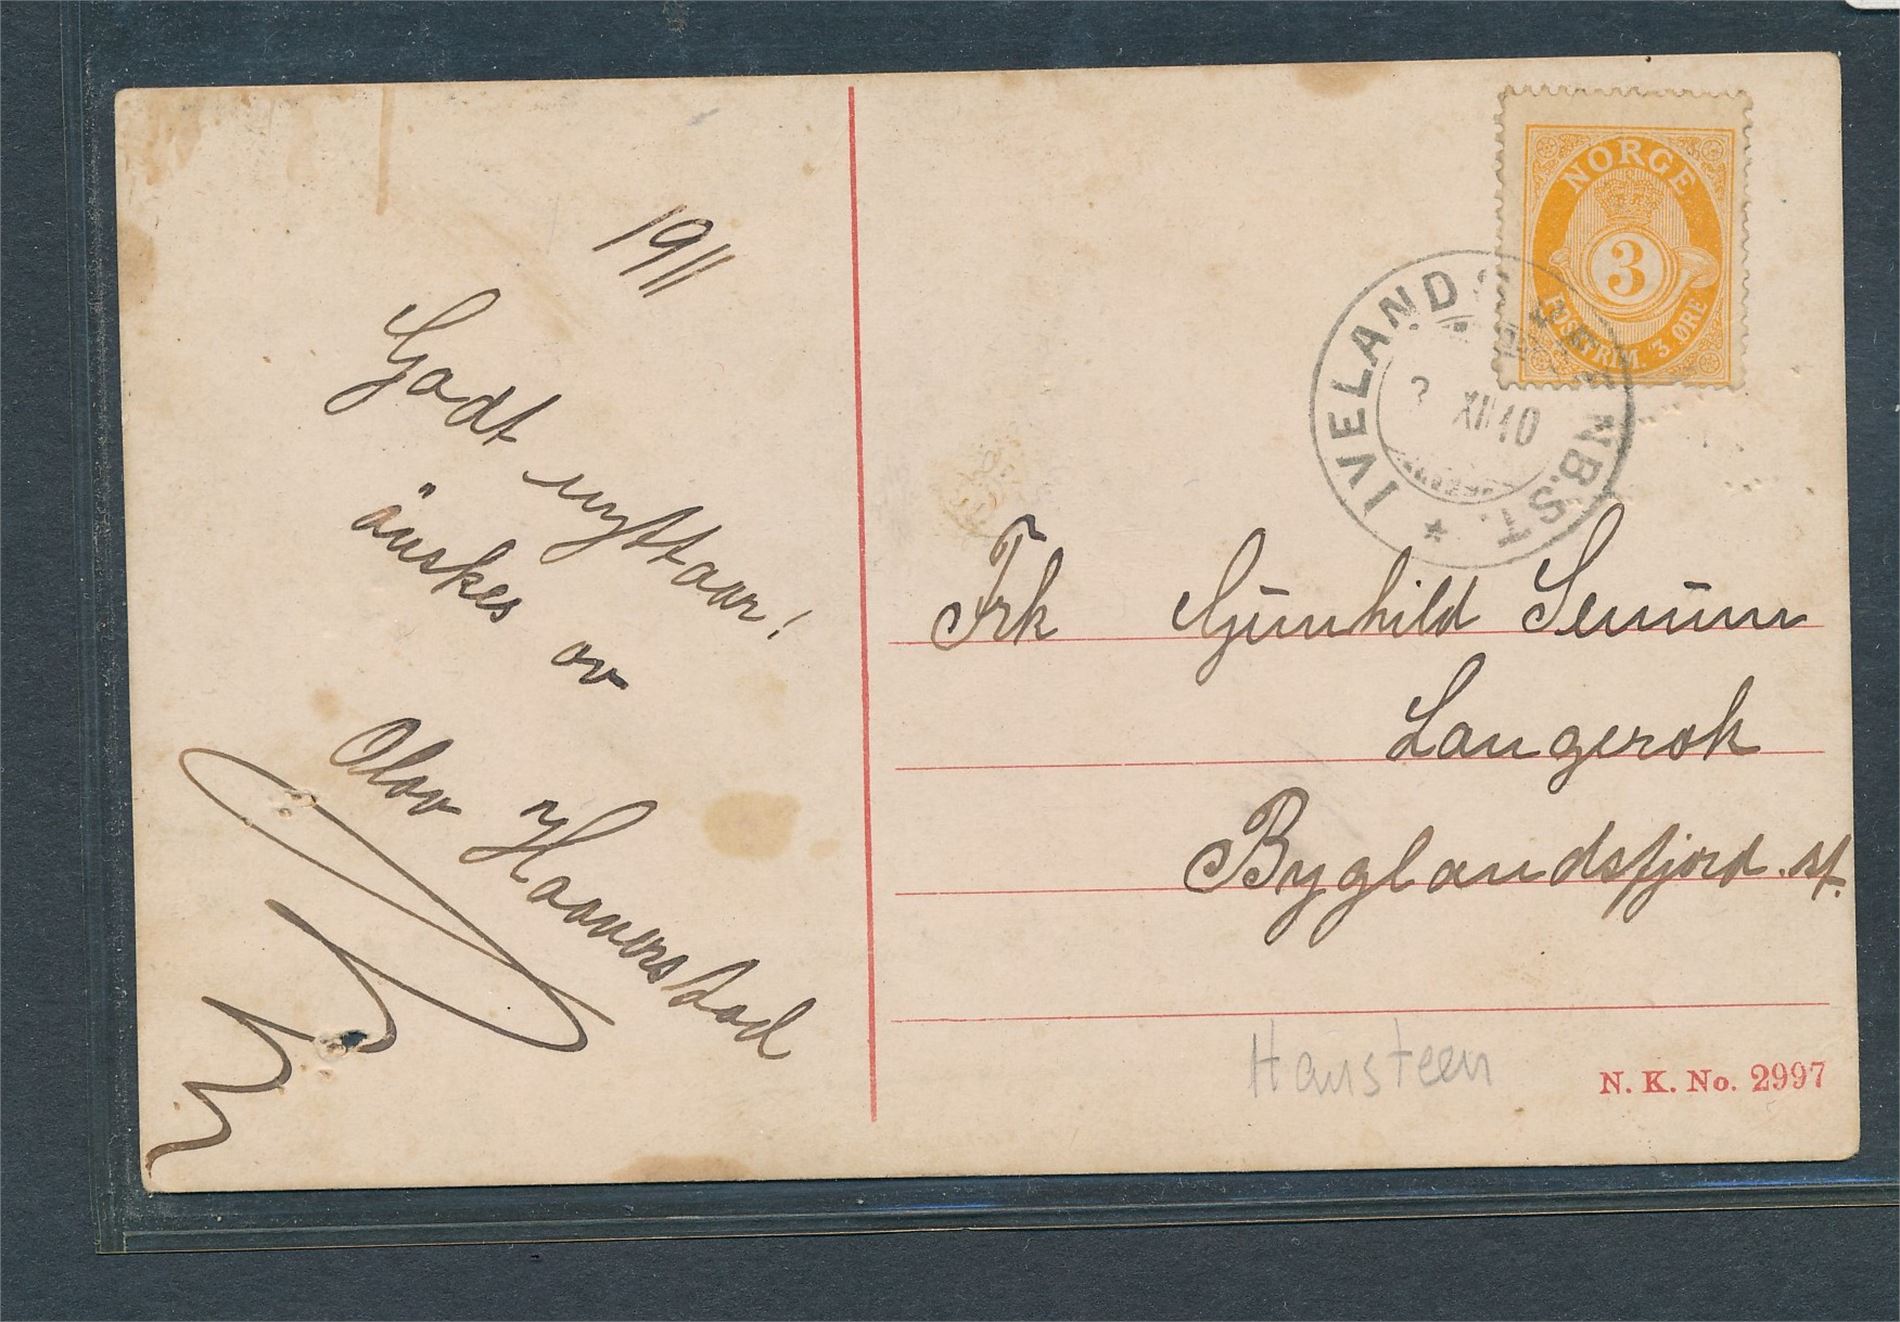 1911
Godt nyttaar!
önskes av
Olav Haaverstad
NORGE
3
POSTFRIM. 3 ØRE
IVELANDS JERNB.ST.
XII 10
Frk Gunhild Senum
Langerok
Byglandsfjord. st.
Hansteen
N. K. No. 2997